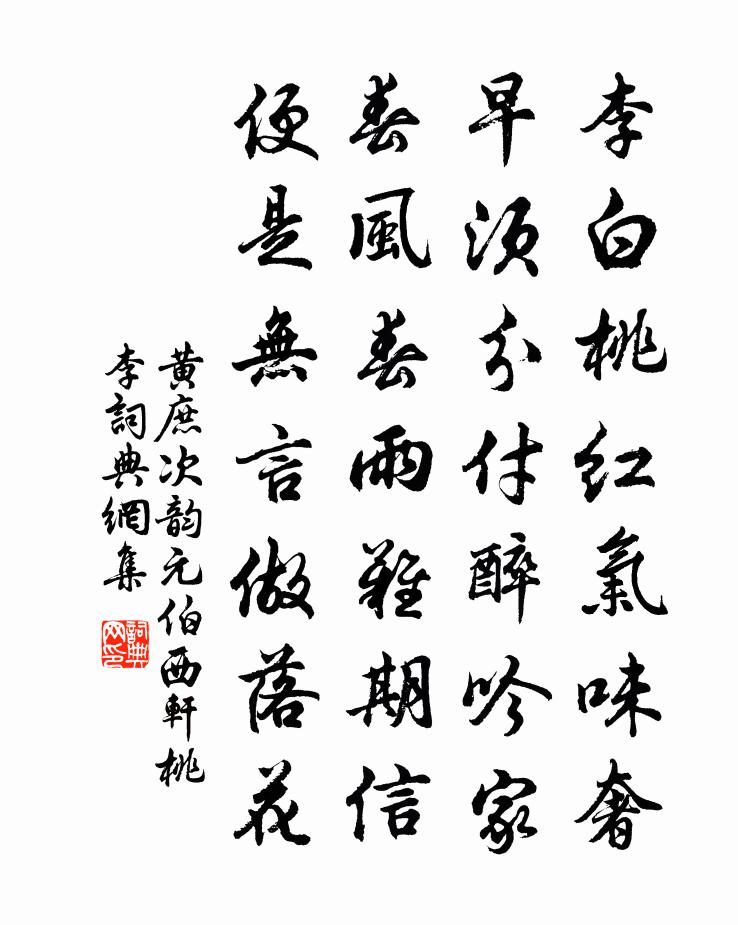 李白桃紅氣味奢
早須分付醉吟家
春風春雨難期信
便是無言做落花
黃庶次韵元伯西軒桃
李詞典網集
詞典網印